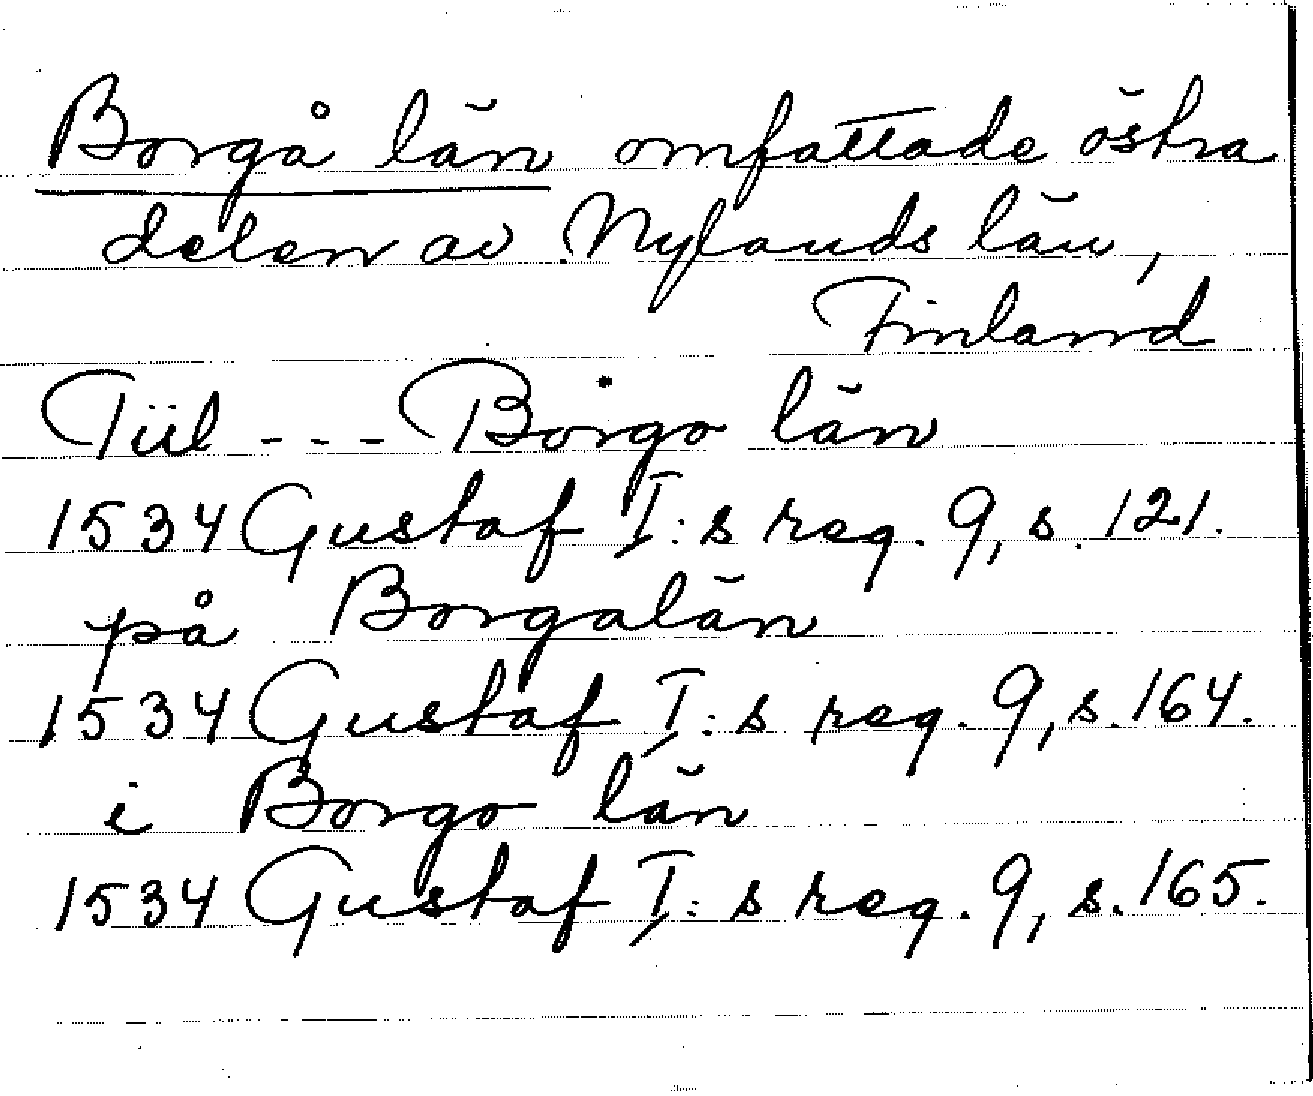 Borgå län omfattade östra
delen av Nylands län,
Finland
Tiil - - - Borgo län
1534 Gustaf I:s reg. 9, s. 121.
på Borgalän
1534 Gustaf I:s reg. 9, s. 164.
i Borgo län
1534 Gustaf I:s reg. 9, s. 165.